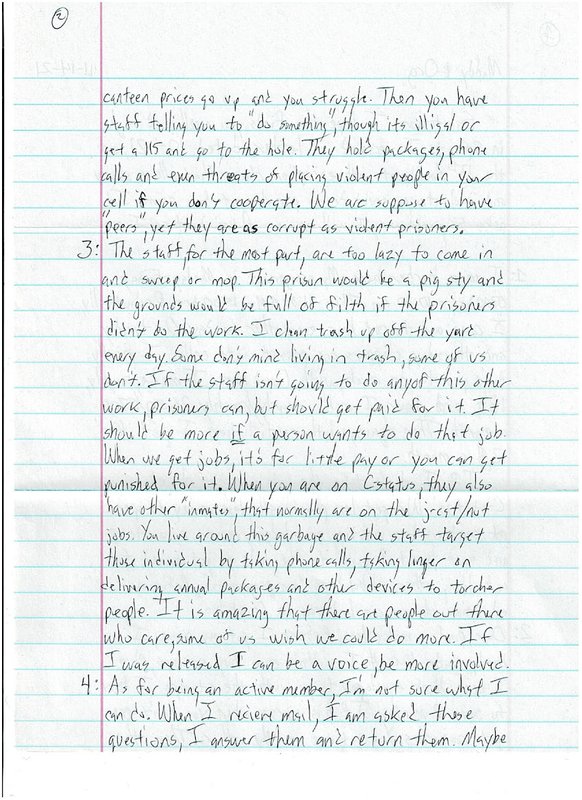 2
canteen prices go up and you struggle. Then you have
staff telling you to "do something", though its illigal or
get a 115 and go to the hole. They hold packages, phone
calls and even threats of placing violent people in your
cell if you don't cooperate. We are suppose to have
"peers", yet they are as corrupt as violent prisoners.
3: The staff, for the most part, are too lazy to come in
and sweep or mop. This prison would be a pig sty and
the grounds would be full of filth if the prisoners
didn't do the work. I clean trash up off the yard
every day. Some don't mind living in trash, some of us
don't. If the staff isn't going to do any of this other
work, prisoners can, but should get paid for it. It
should be more if a person wants to do that job.
When we get jobs, it's for little pay or you can get
punished for it. When you are on Cstatus, they also
have other "inmates", that normally are on the j-cat/nut
jobs. You live around this garbage and the staff target
those individual by taking phone calls, taking longer on
delivering annual packages and other devices to torcher
people. It is amazing that there are people out there
who care, some of us wish we could do more. If
I was released I can be a voice, be more involved.
4: As for being an active member, I'm not sure what I
can do. When I recieve mail, I am asked these
questions, I answer them and return them. Maybe